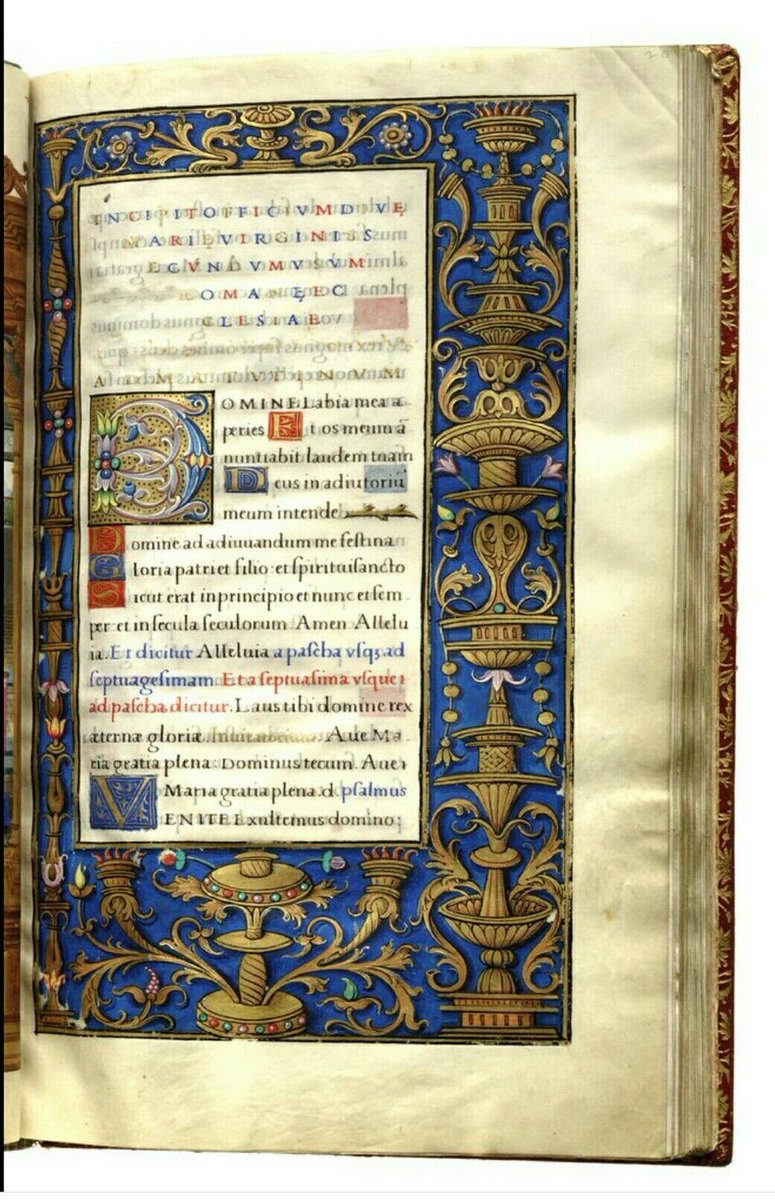 INCIPIT OFFICIVM DIVĘ
MARIĘ VIRGINIS S
ECVNDVM VSVM
ROMANĘ EC
CLESIAE
AD MATVTINVM
DOMINE Labia mea a
peries Et os meum ā
nuntiabit laudem tuam
Deus in adiutoriū
meum intende
Domine ad adiuuandum me festina
Gloria patri et filio: et spiritui sancto
Sicut erat in principio et nunc et sem
per: et in secula seculorum Amen Allelu
ia. Et dicitur Alleluia a pascha vsq; ad
septuagesimam. Et a septuasima vsque
ad pascha dicitur. Laus tibi domine rex
æternæ gloriæ. Inuitatorium. Aue Ma
ria gratia plena. Dominus tecum. Aue
Maria gratia plena. d. psalmus
VENITE Exultemus domino: